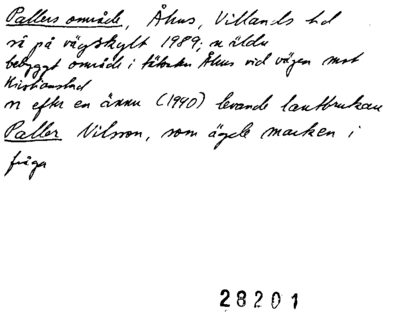 Pallers område, Åhus, Villands hd
så på vägskylt 1989; n äldre
bebyggt område i tätorten Åhus vid vägen mot
Kristianstad
n efter en ännu (1990) levande lantbrukare
Paller Nilsson, som ägde marken i
fråga
28201